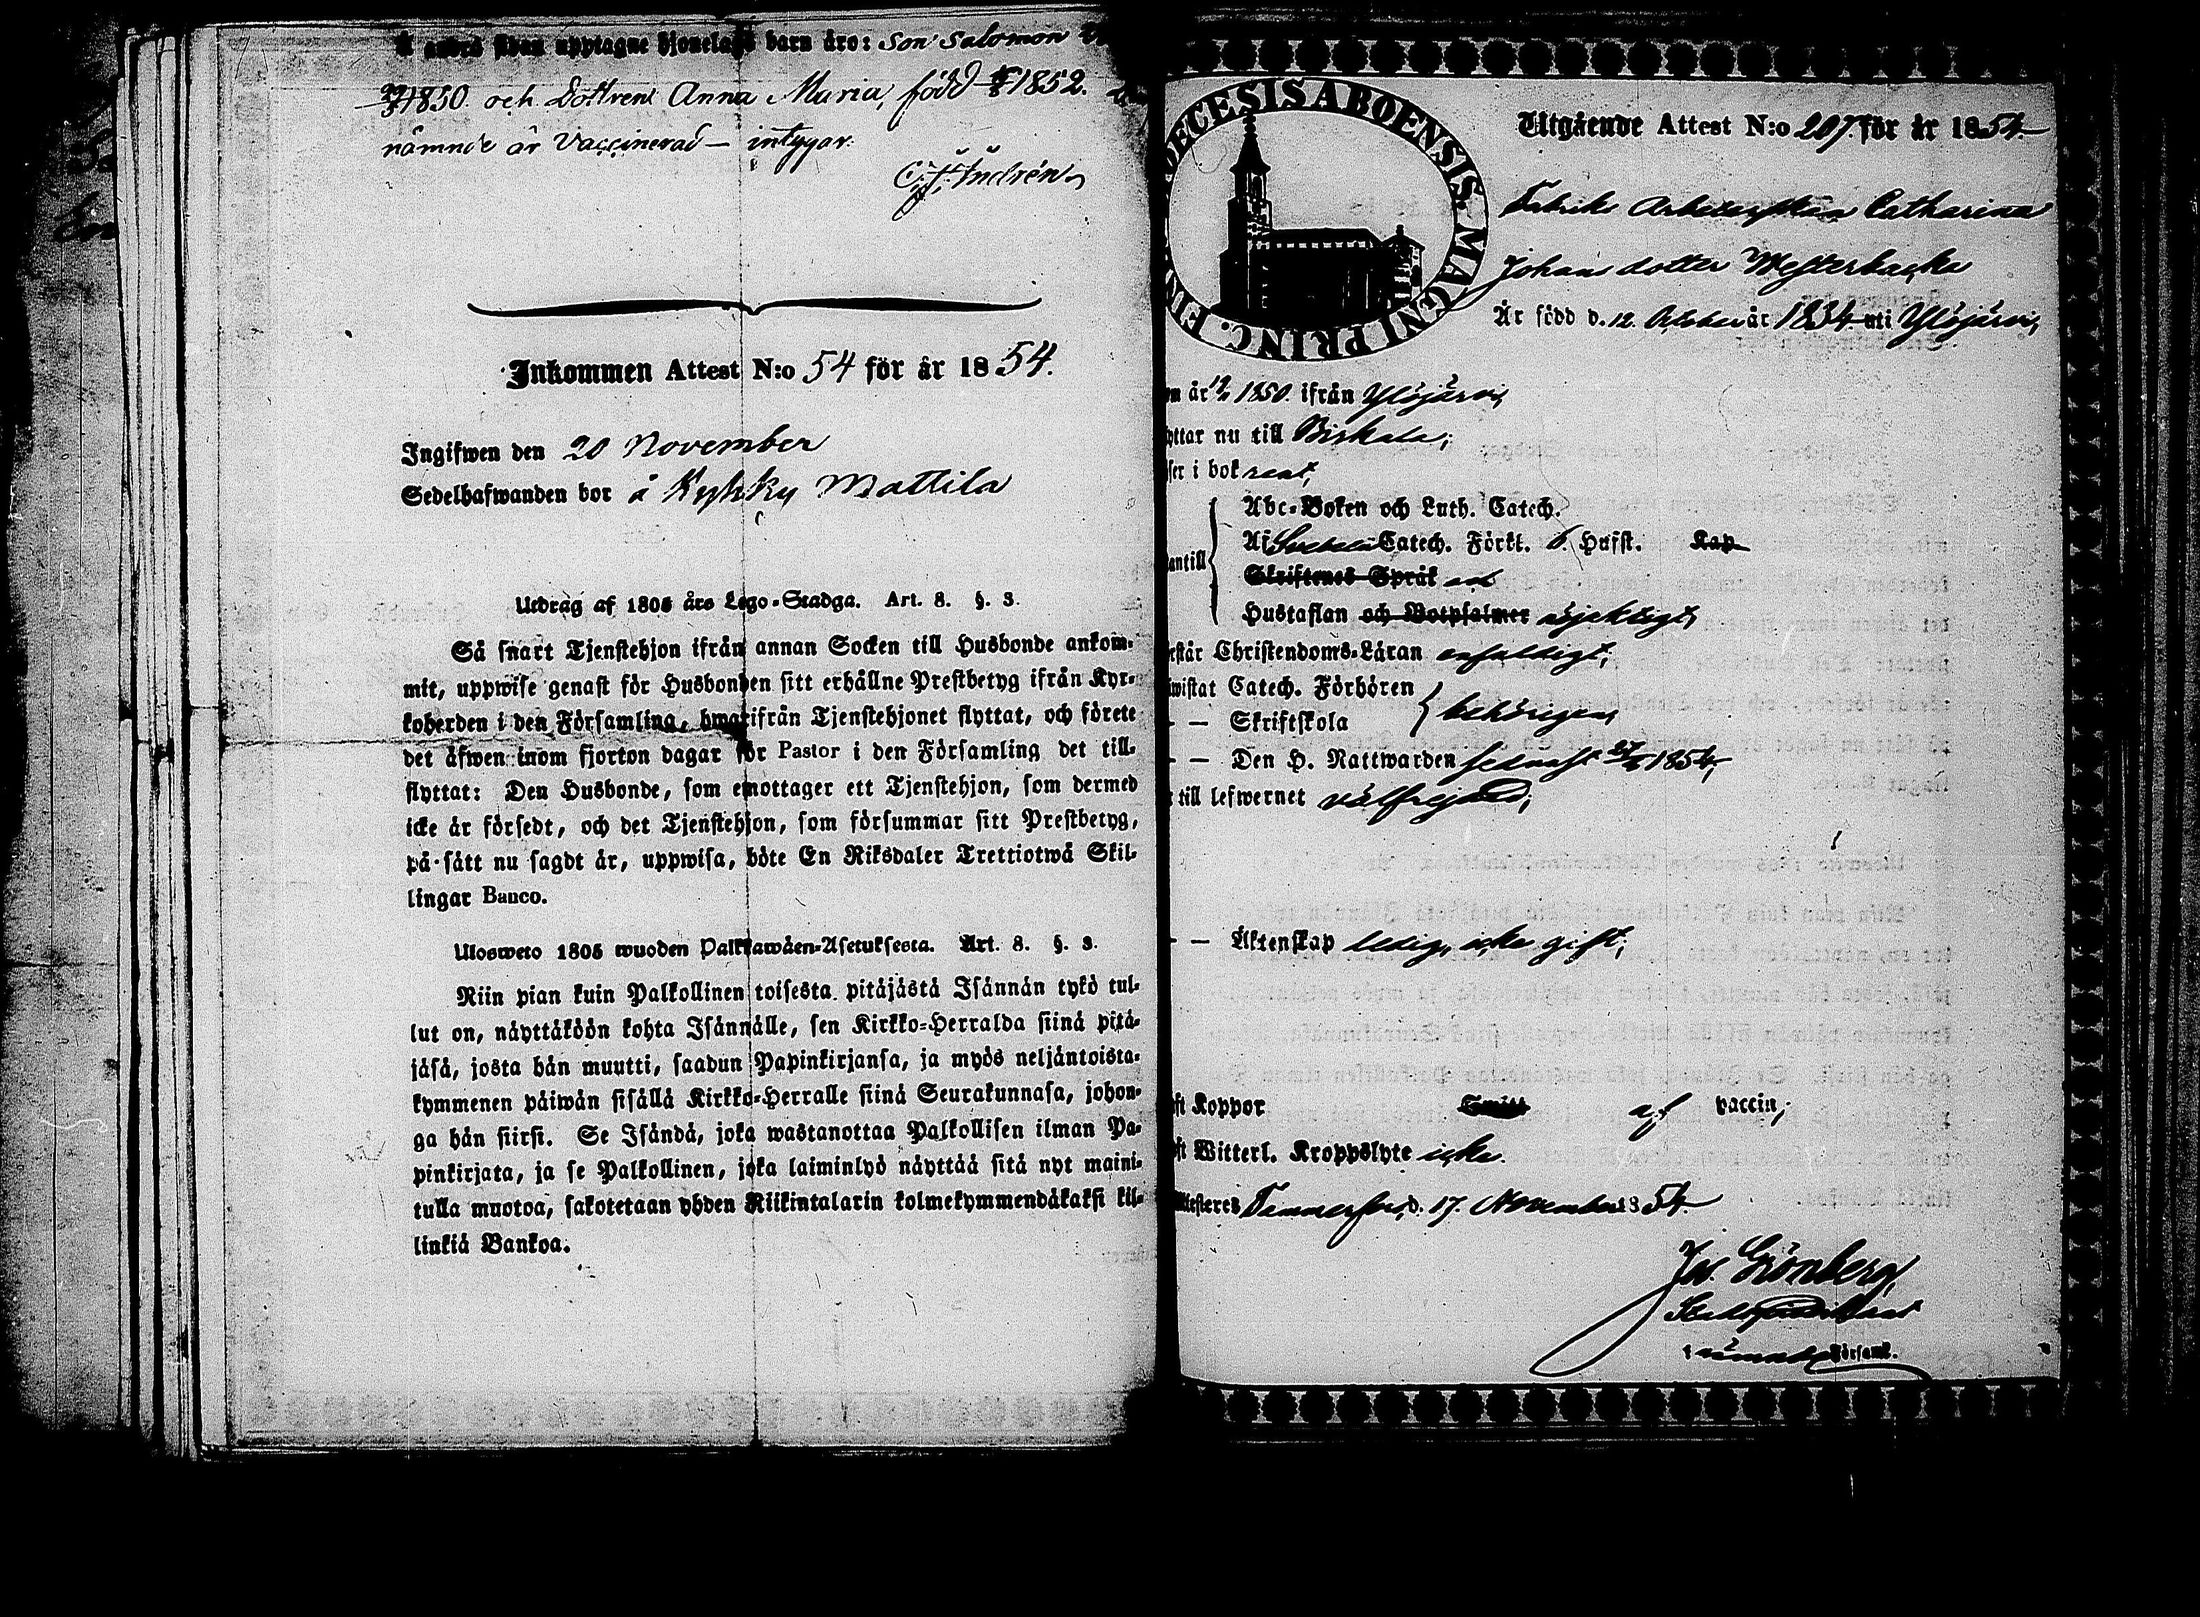 å andra sidan upptagne hjonelags barn äro: Son Salomon
1850 och Dottren Anna Maria, född 1852.
nämnde är Vaccinerad — intygar.
Inkommen Attest N:o 54 för år 1854.
Ingifwen den 20 November
Sedelhafwanden bor å Kyhky Mattila
Utdrag af 1805 års Lego-Stadga. Art. 8. §. 3.
Så snart Tjenstehjon ifrån annan Socken till Husbonde ankom-
mit, uppwise genast för Husbonden sitt erhållne Prestbetyg ifrån Kyr-
koherden i den Församling, hwarifrån Tjenstehjonet flyttat, och förete
det äfwen inom fjorton dagar för Pastor i den Församling det till-
flyttat: Den Husbonde, som emottager ett Tjenstehjon, som dermed
icke är försedt, och det Tjenstehjon, som försummar sitt Prestbetyg,
på sätt nu sagdt är, uppwisa, böte En Riksdaler Trettiotwå Skil-
lingar Banco.
Ulosweto 1805 wuoden Palkkawäen-Asetuksesta. Art. 8. §. 3.
Niin pian kuin Palkollinen toisesta pitäjästä Isännän tykö tul-
lut on, näyttäköön kohta Isännälle, sen Kirkko-Herralda siinä pitä-
jäsä, josta hän muutti, saadun Papinkirjansa, ja myös neljäntoista-
kymmenen päiwän sisällä Kirkko-Herralle siinä Seurakunnasa, johon-
ga hän siirsi. Se Isändä, joka wastanottaa Palkollisen ilman Pa-
pinkirjata, ja se Palkollinen, joka laiminlyö näyttää sitä nyt maini-
tulla muotoa, sakotetaan yhden Riikintalarin kolmekymmendäkaksi kil-
linkiä Bankoa.
DECESIS ABOENSIS. MAGNI PRINC. FIN
Utgående Attest N:o 207 för år 1854
Fabriks Arbeterskan Catharina
Johans dotter Westerbacka
Är född d. 12 October år 1834 uti Ylöjärvi,
om år 1850. ifrån Ylöjärvi,
yttar nu till Birkala;
ser i bok rent,
antill
Abc-Boken och Luth. Catech.
Aj Svebelii Catech. Förkl. H. Hufst. Kap
Skriftenes Språk och
Hustaflan och Botpsalmer nöjaktigt,
rstår Christendoms-Läran enfaldigt;
iwistat Catech. Förhören
— — Skriftskola behörigen,
— — Den H. Nattwarden sednast 1854,
till lefwernet välfrejdad;
— — Äktenskap ledig, icke gift;
ft Koppor Smitt af vaccin;
ft Witterl. Kroppslyte icke.
Attesteres Tammerfors, d. 17. November 1854
Grönberg
Församl.